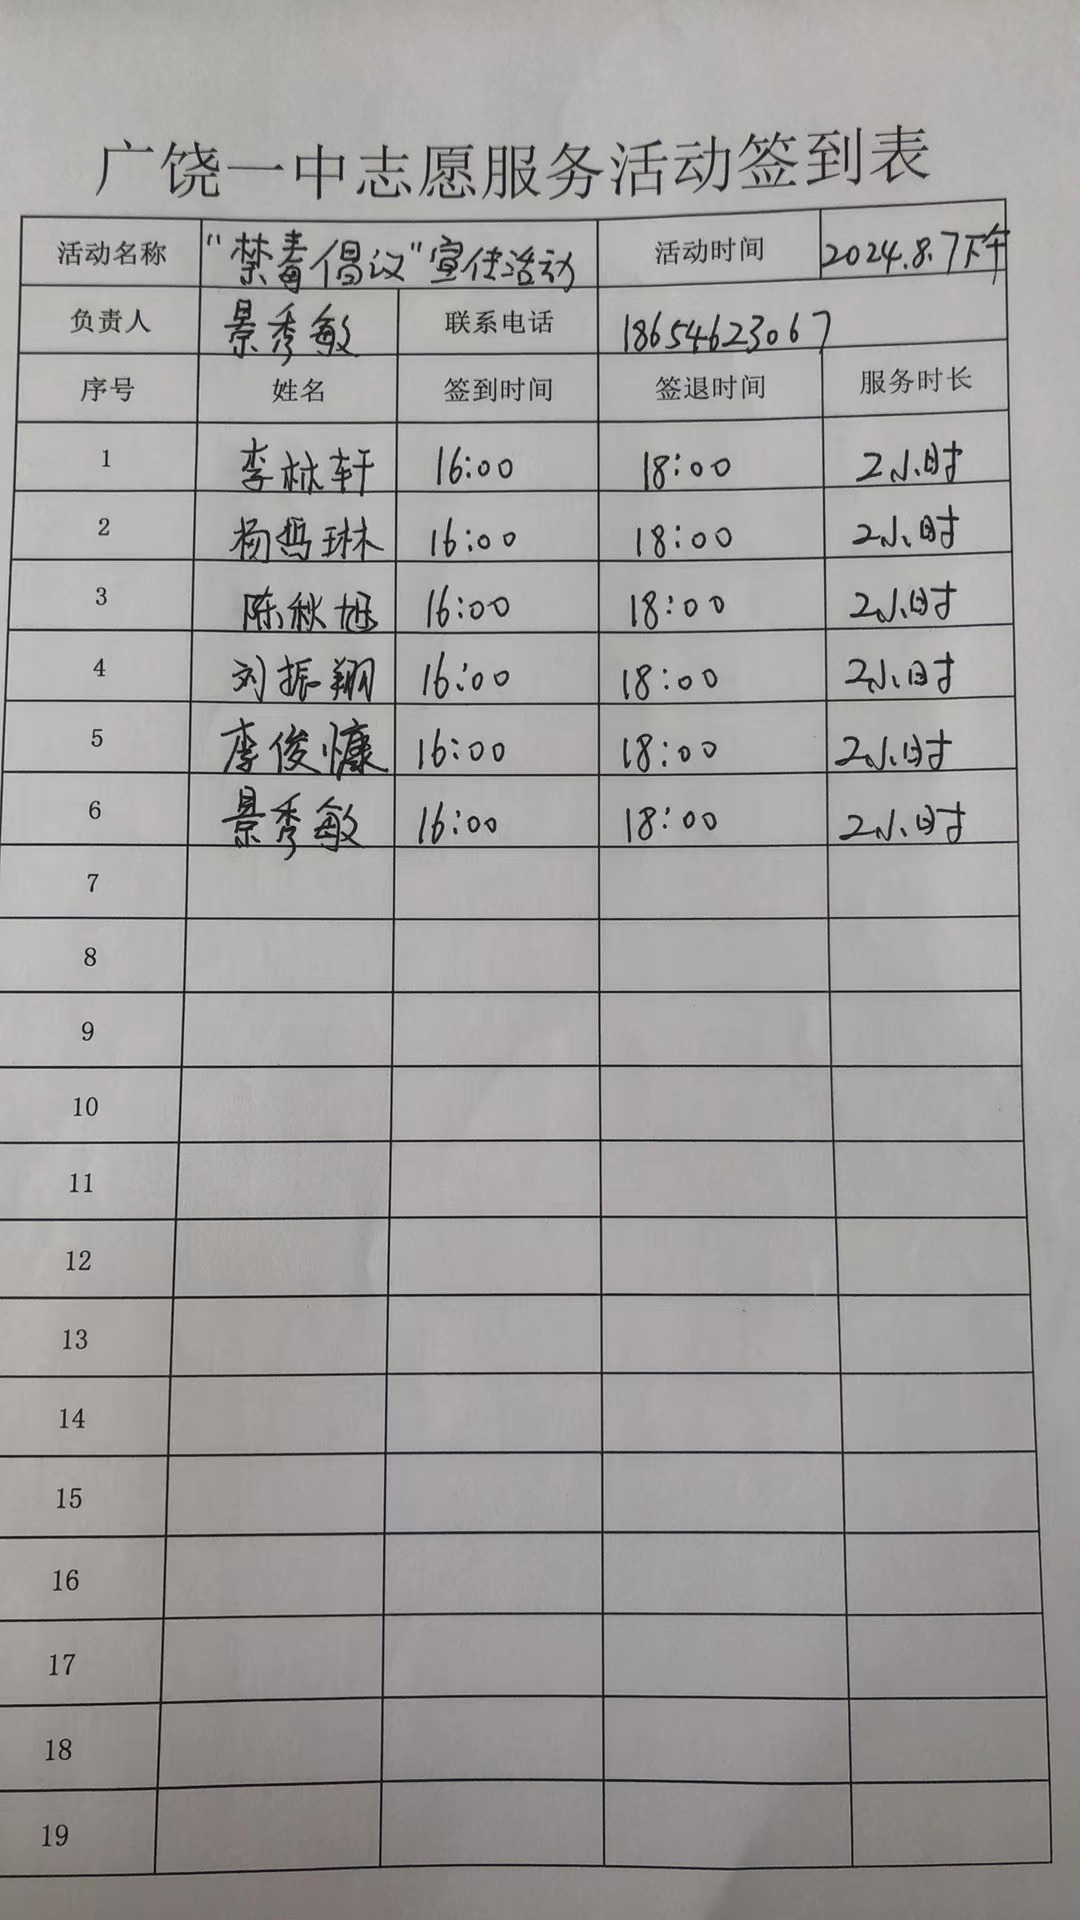 广饶一中志愿服务活动签到表
活动名称 "禁毒倡议"宣传活动 活动时间 2024.8.7下午
负责人 景秀敏 联系电话 18654623067
序号 姓名 签到时间 签退时间 服务时长
1 李林轩 16:00 18:00 2小时
2 杨哲琳 16:00 18:00 2小时
3 陈秋旭 16:00 18:00 2小时
4 刘振翔 16:00 18:00 2小时
5 李俊慷 16:00 18:00 2小时
6 景秀敏 16:00 18:00 2小时
7
8
9
10
11
12
13
14
15
16
17
18
19